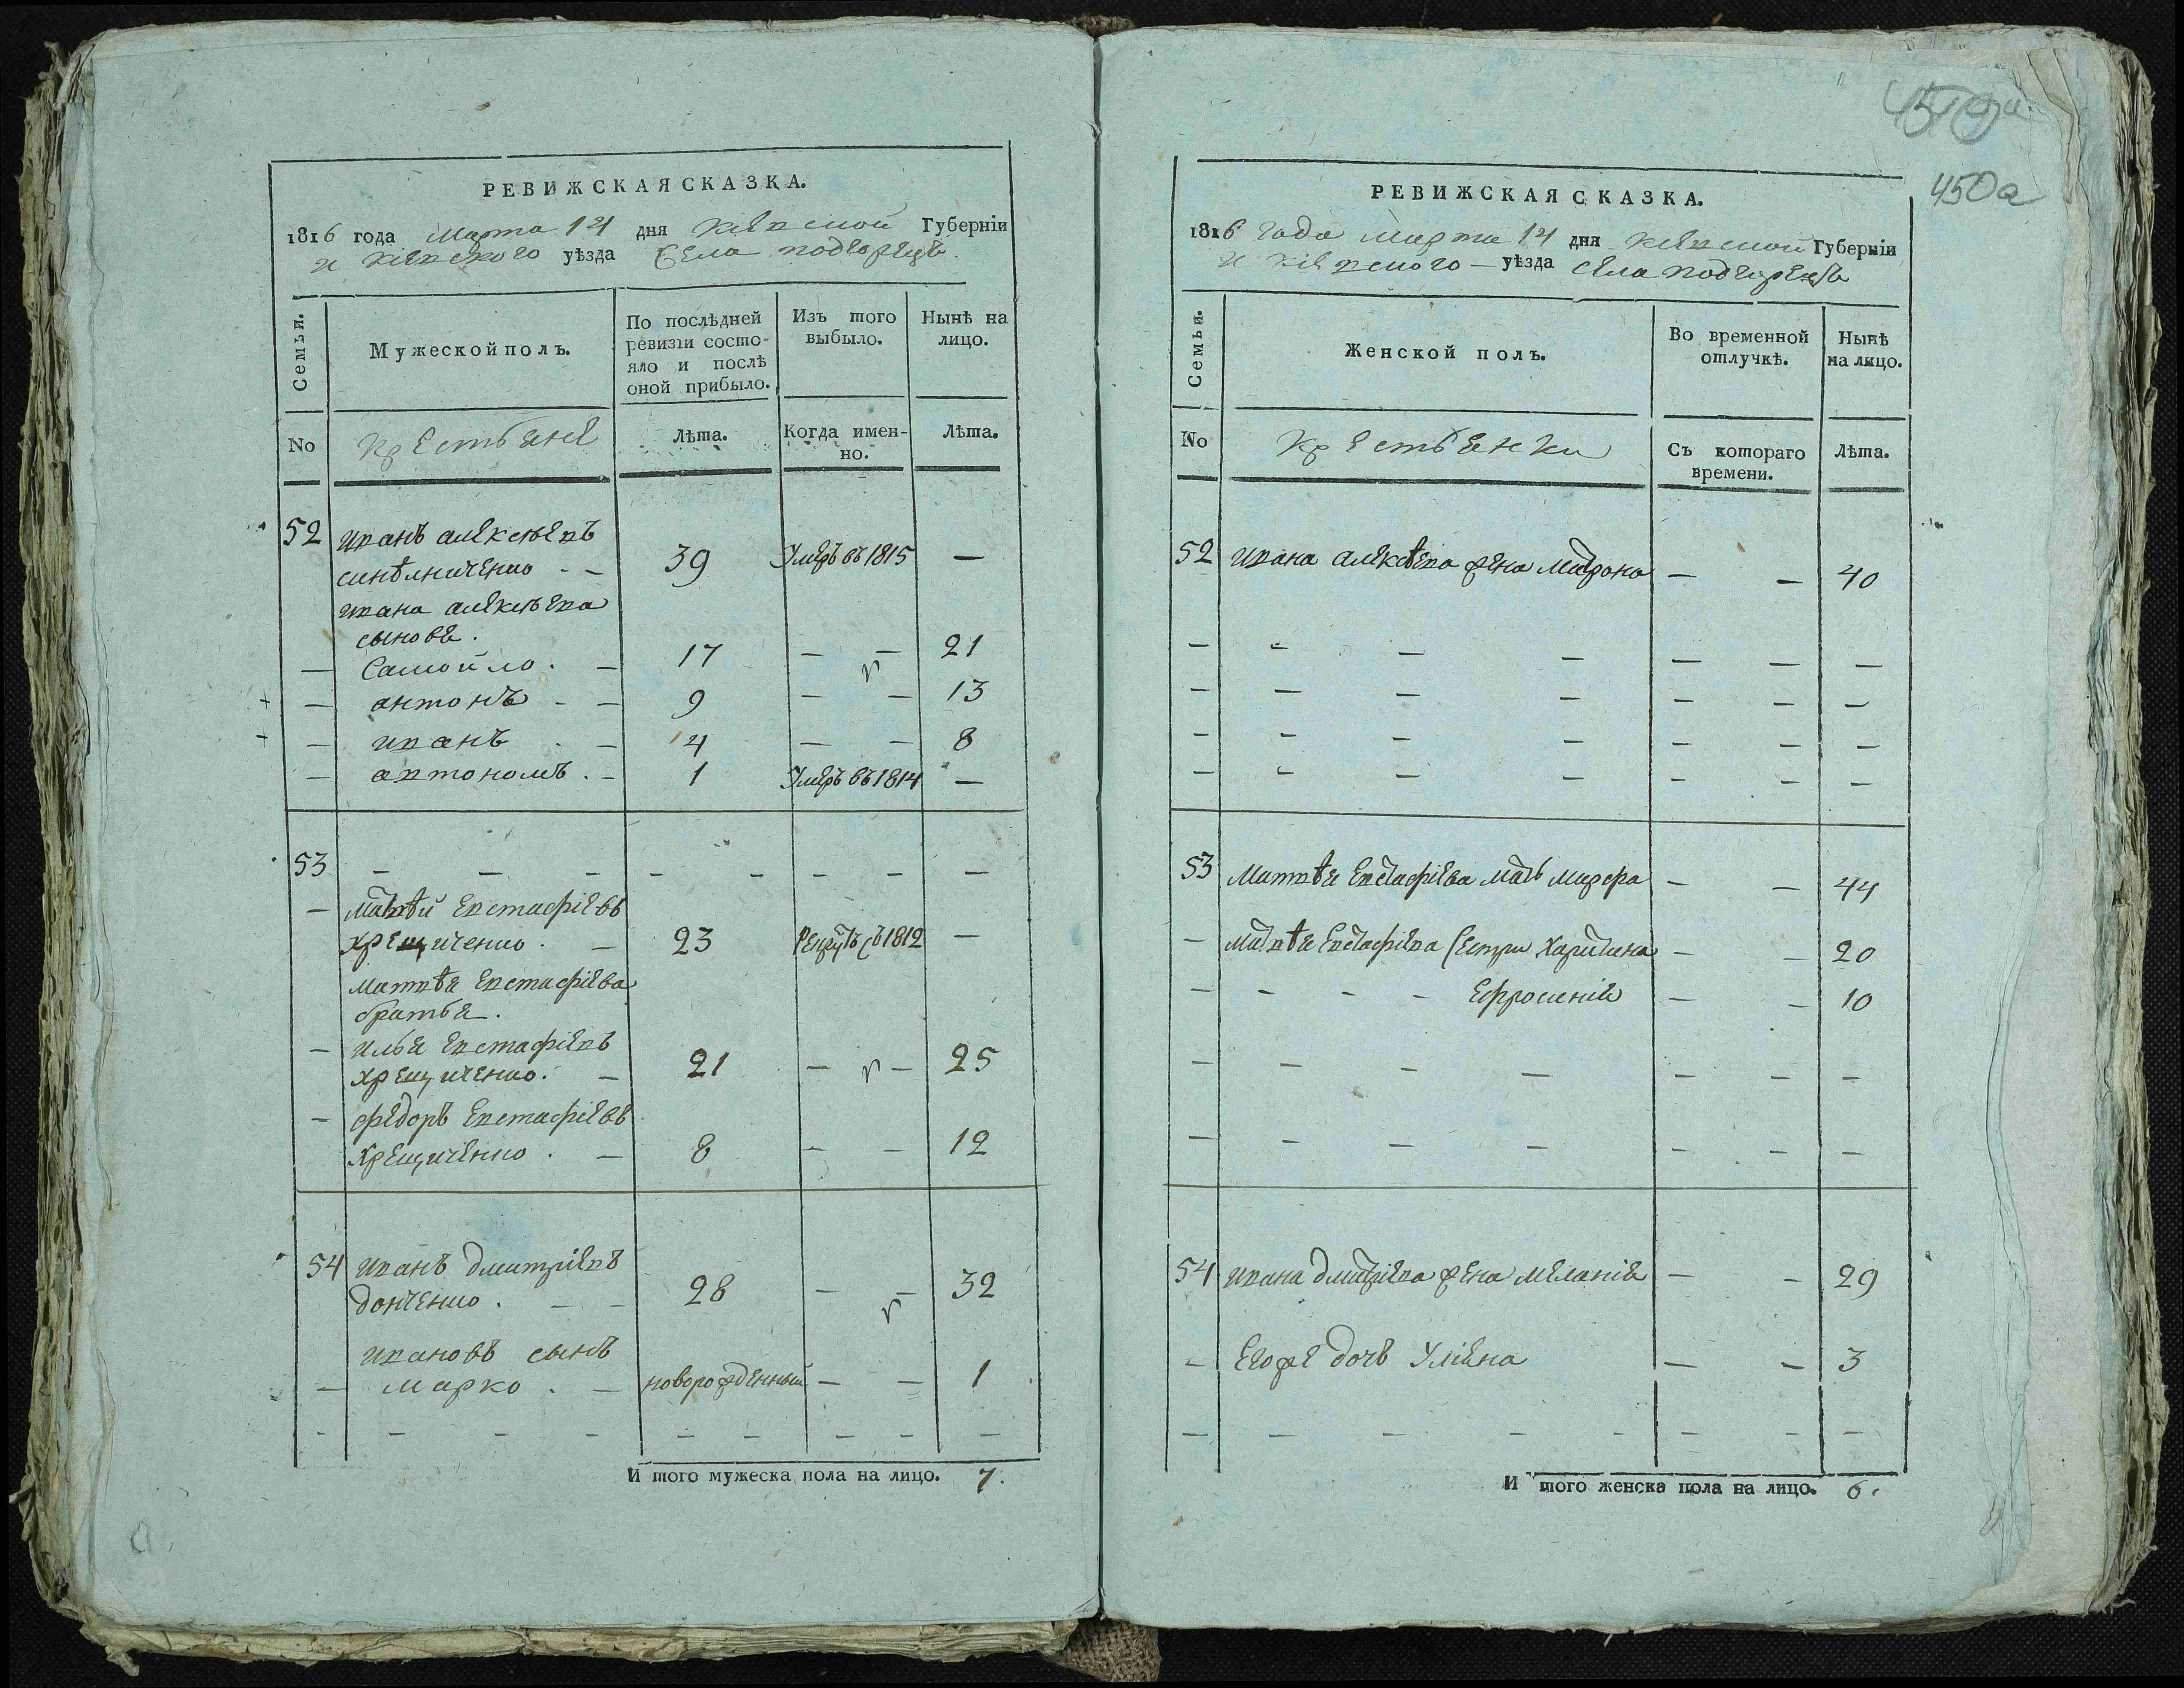 РЕВИЖСКАЯ СКАЗКА.
1816 года Марта 14 дня Кіевской Губерніи
и Кіевского уѣзда Села подгорецъ
Семьи.
Мужеской полъ.
По послѣдней
ревизіи состо-
яло и послѣ
оной прибыло.
Изъ того
выбыло.
Нынѣ на
лицо.
No
Крестьяне
Лѣта.
Когда имен-
но.
Лѣта.
52 иванъ алексѣевъ
синѣлниченко - - 39 Умеръ въ 1815 —
ивана алексѣева
сыновя.
— Самойло. — 17 — — 21
— антонъ - — 9 — — 13
— иванъ . — 4 — — 8
— автономъ . - 1 Умеръ въ 1814 —
53 — — — — — — — —
— Матвѣй Евстафіевъ
хрещиченко . — 23 —
Матвѣя Евстафіева
братья.
— илья Евстафіевъ
хрещиченко. — 21 — — 25
— федоръ Евстафіевъ
хрещиченко . — 8 — — 12
54 иванъ дмитріевъ
донченко . — - 28 — — 32
ивановъ сынъ
— марко . — новорожденный — — 1
- — — — — — — — —
И того мужеска пола на лицо. 7.
450а
РЕВИЖСКАЯ СКАЗКА.
1816 года марта 14 дня Кіевской Губерніи
и Кіевского — уѣзда села подгорецъ
Семьи.
Женской полъ.
Во временной
отлучкѣ.
Нынѣ
на лицо.
No
Крестьянки
Съ котораго
времени.
Лѣта.
52 ивана алексѣева жена Матрона — — 40
— - — — — — —
— — — — — — —
— — — — — — —
— - — — — — —
53 Матвѣя Евстафіева мать марфа — — 44
— Матвѣя Евстафіева Сестри Харитина — — 20
— - - - Ефросинія — — 10
— — — — — — —
— — — — — — —
54 ивана дмитріева жена меланія — - 29
- Егоже дочь Уліяна — — 3
— — — — - — - —
И того женска пола на лицо. 6.